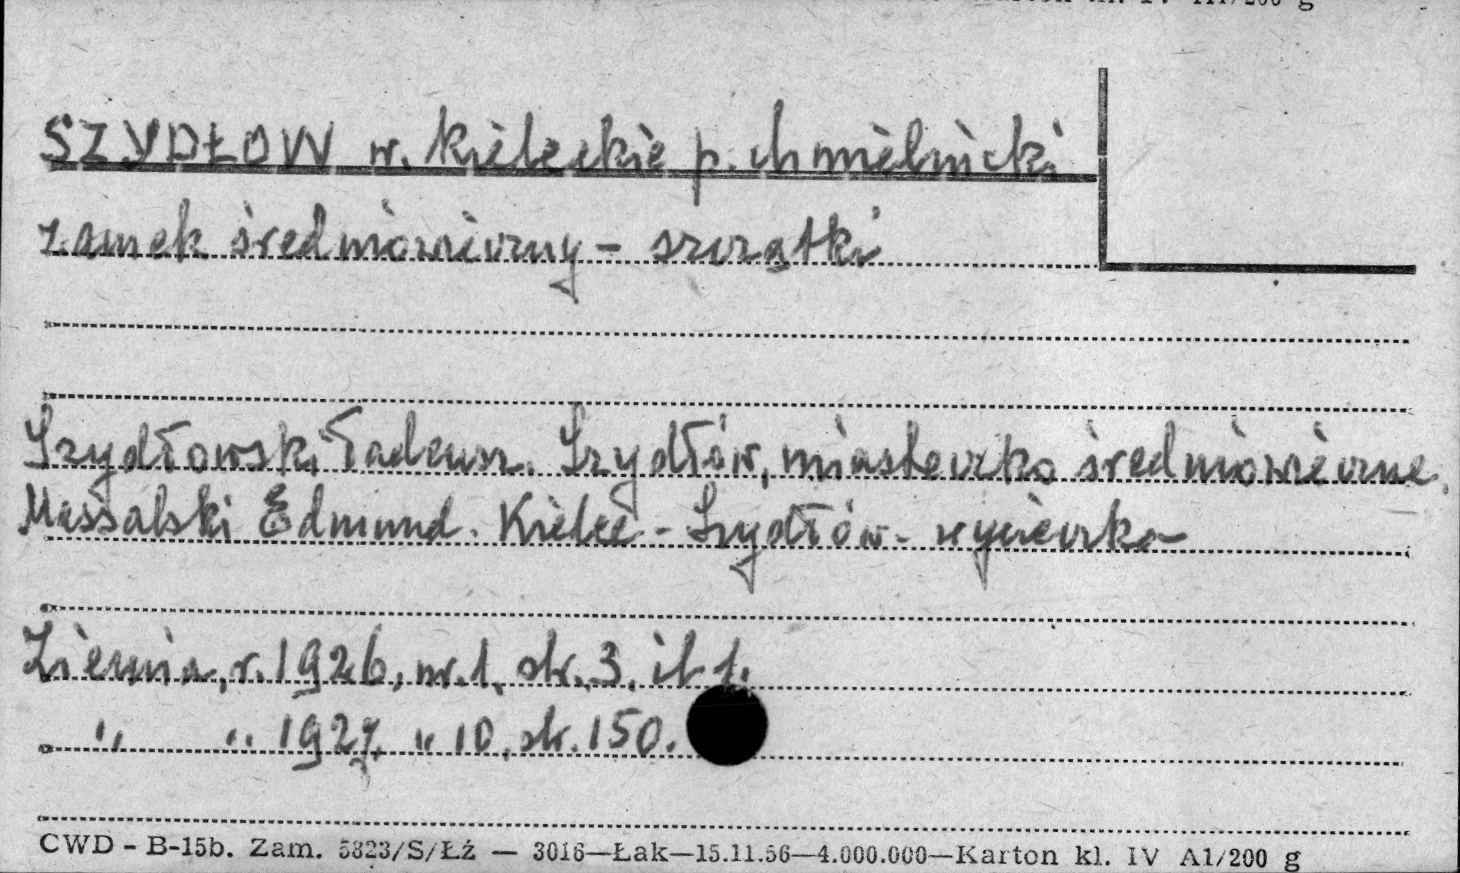 Karton kl. IV III/200 g
SZYDŁÓW w. kieleckie p. chmielnicki
zamek średniowieczny - szczątki
Szydłowski Tadeusz. Szydłów, miasteczko średniowieczne.
Massalski Edmund. Kielce - Szydłów - wycieczka
Ziemia, r. 1926, nr. 1, str. 3. il. 1.
" " 1927, " 10, str. 150.
CWD - B-15b. Zam. 5823/S/ŁŻ — 3016—Łak—15.11.56—4.000.000—Karton kl. IV A1/200 g